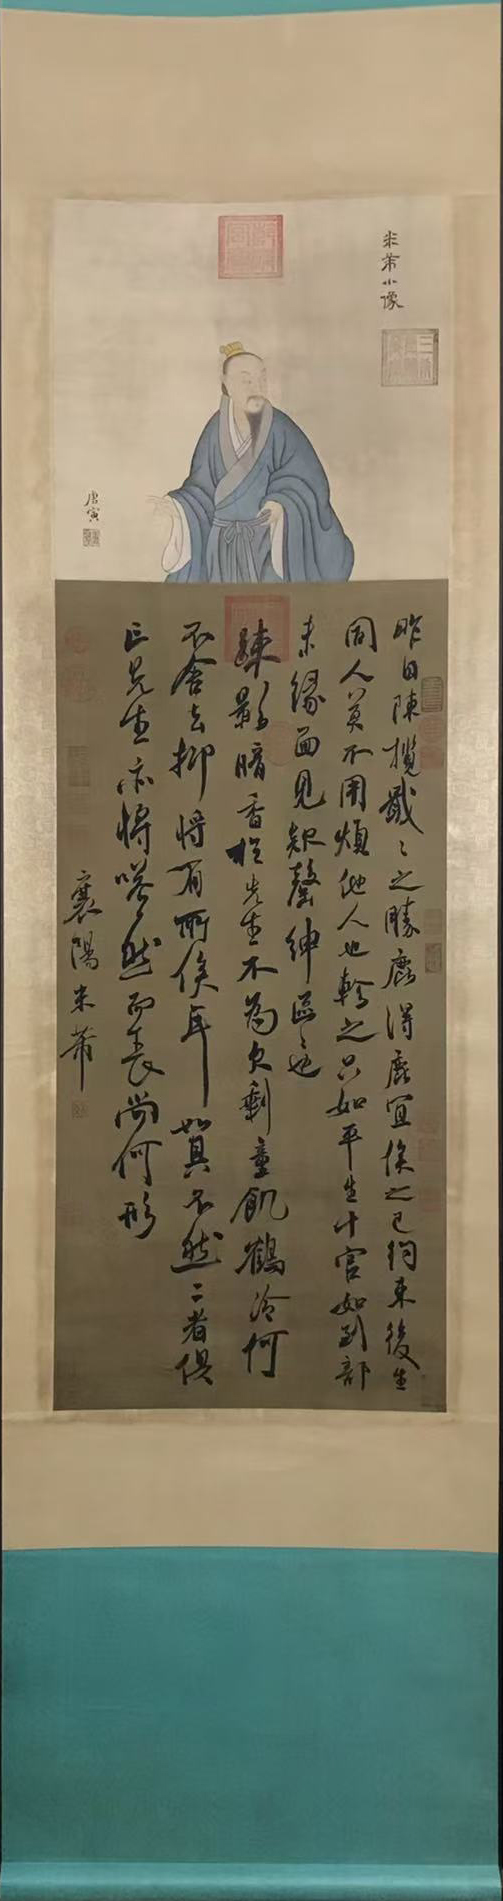 米芾小像
唐寅
昨日陳攬戢戢之勝鹿得鹿宜俟之已約束後生
同人莫不用煩他人也輕之只如平生十官如到部
未緣面見欵罄紳區區也
疎影暗香投先生不為欠剩童飢鶴冷何
不舍去抑將有所俟耳貿不然二者俱
亡先生亦將嗒然而喪尚何形
襄陽米芾